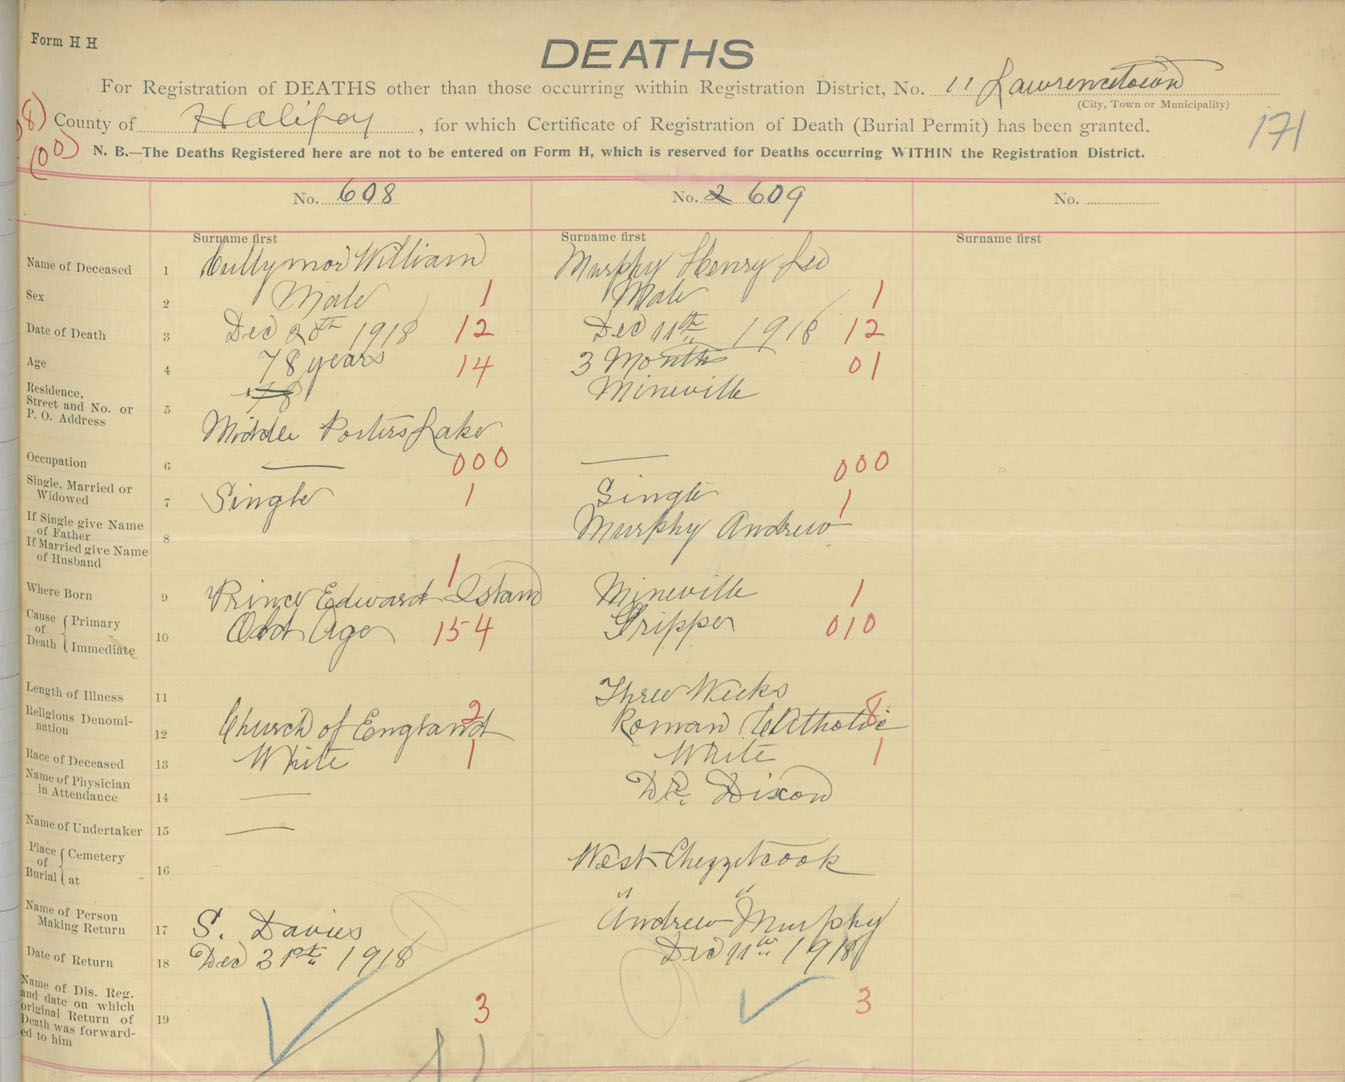 Form H H
DEATHS
For Registration of DEATHS other than those occurring within Registration District, No. 11 Lawrencetown
(City, Town or Municipality)
County of Halifax, for which Certificate of Registration of Death (Burial Permit) has been granted.
171
N. B.—The Deaths Registered here are not to be entered on Form H, which is reserved for Deaths occurring WITHIN the Registration District.
No. 608 No. 2 609 No.
Surname first Surname first Surname first
Name of Deceased 1 William Murphy Henry Leo
Sex 2 Male 1 Male 1
Date of Death 3 Dec 20th 1918 12 Dec 11th 1918 12
Age 4 78 years 14 3 Months 01
Residence, Street and No. or P. O. Address 5 78 Mineville
Middle Porters Lake
Occupation 6 — 000 — 000
Single, Married or Widowed 7 Single 1 Single 1
If Single give Name of Father
If Married give Name of Husband 8 Murphy Andrew
Where Born 9 Prince Edward Island 1 Mineville 1
Cause of Death { Primary
Immediate 10 Old Age 154 Grippe 010
Length of Illness 11 Three Weeks
Religious Denomi-
nation 12 Church of England 2 Roman Catholic 8
Race of Deceased 13 White 1 White 1
Name of Physician
in Attendance 14 — DR. Dixon
Name of Undertaker 15 —
Place of Burial { Cemetery
at 16 West Chezzetcook
" "
Name of Person
Making Return 17 S. Davies Andrew Murphy
Date of Return 18 Dec 31st 1918 Dec 11th 1918
Name of Dis. Reg.
and date on which
original Return of
Death was forward-
ed to him 19 3 3